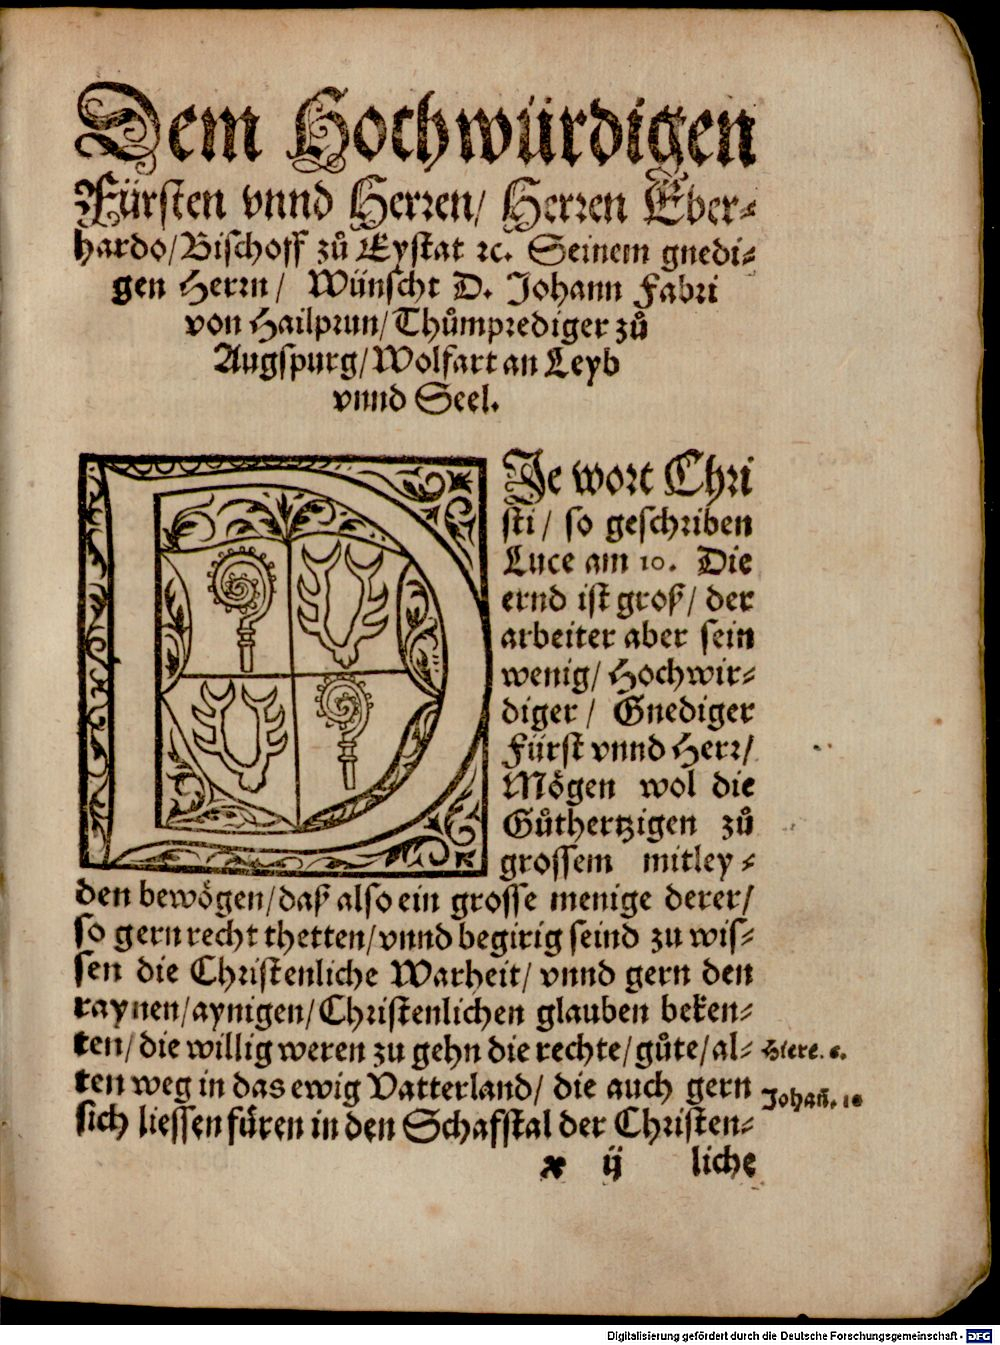 Dem Hochwürdigen
Fürsten vnnd Herren/ Herren Eber⸗
hardo/ Bischoff zů Eystat ꝛc. Seinem gnedi⸗
gen Herrn/ Wünscht D. Johann Fabri
von Hailprun/ Thůmprediger zů
Augspurg/ Wolfart an Leyb
vnnd Seel.
DJe wort Chri
sti/ so geschriben
Luce am 10. Die
ernd ist groß/ der
arbeiter aber sein
wenig/ Hochwir⸗
diger/ Gnediger
Fürst vnnd Herr/
Mögen wol die
Gůthertzigen zů
grossem mitley⸗
den bewögen/ daß also ein grosse menige derer/
so gern recht thetten/ vnnd begirig seind zu wis⸗
sen die Christenliche Warheit/ vnnd gern den
raynen/ aynigen/ Christenlichen glauben beken⸗
ten/ die willig weren zu gehn die rechte/ gůte/ al⸗
Hiere. 6.
ten weg in das ewig Vatterland/ die auch gern
Johañ. 10
sich liessen füren in den Schafstal der Christen⸗
x ij liche
Digitalisierung gefördert durch die Deutsche Forschungsgemeinschaft - DFG